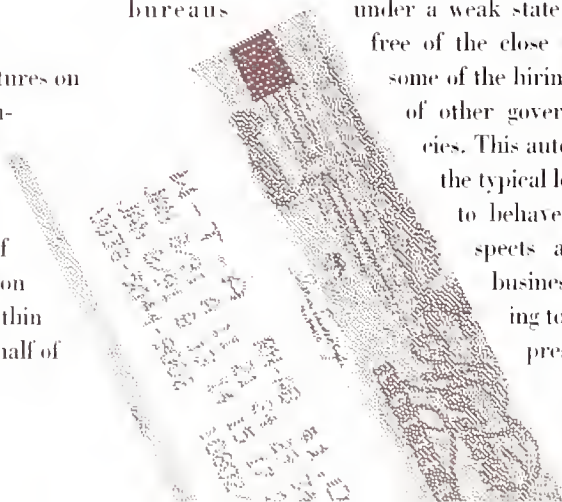 bureaus
tures on
f
on
thin
half of
under a weak state
free of the close
some of the hirin
of other gover
cies. This aut
the typical l
to behave
spects a
busines
ing to
pre